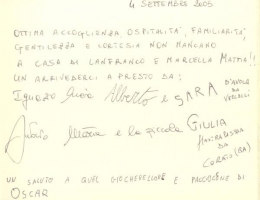 4 SETTEMBRE 2005
OTTIMA ACCOGLIENZA, OSPITALITÀ, FAMILIARITÀ,
GENTILEZZA E CORTESIA NON MANCANO
A CASA DI LANFRANCO E MARCELLA MATTIA!!
UN ARRIVEDERCI A PRESTO DA:
Ignazio Alberto e SARA D'AVOLA DA VERCELLI
Maria e la piccola GIULIA
DA
CORATO (BA)
UN SALUTO A QUEL GIOCHERELLONE E PACIOCCONE DI
OSCAR